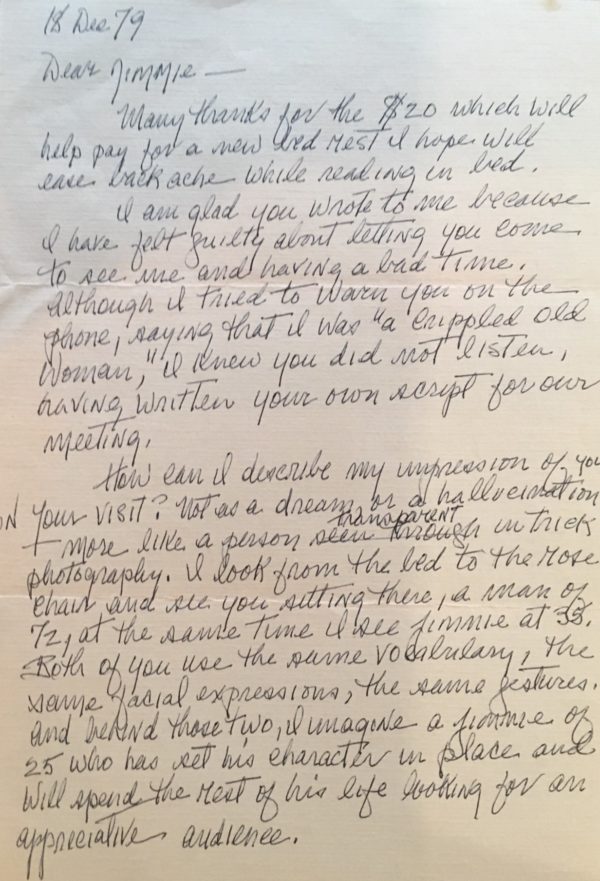 18 Dec 79
Dear Jimmie —
Many thanks for the $20 which will
help pay for a new bed rest I hope will
ease backache while reading in bed.
I am glad you wrote to me because
I have felt guilty about letting you come
to see me and having a bad time.
Although I tried to warn you on the
phone, saying that I was "a crippled old
woman," I knew you did not listen,
having written your own script for our
meeting.
How can I describe my impression of you
on your visit? Not as a dream or a hallucination
transparent
— more like a person seen through in trick
photography. I look from the bed to the rose
chair and see you sitting there, a man of
72, at the same time I see Jimmie at 35.
Both of you use the same vocabulary, the
same facial expressions, the same gestures.
And behind those two, I imagine a Jimmie of
25 who has set his character in place and
will spend the rest of his life looking for an
appreciative audience.